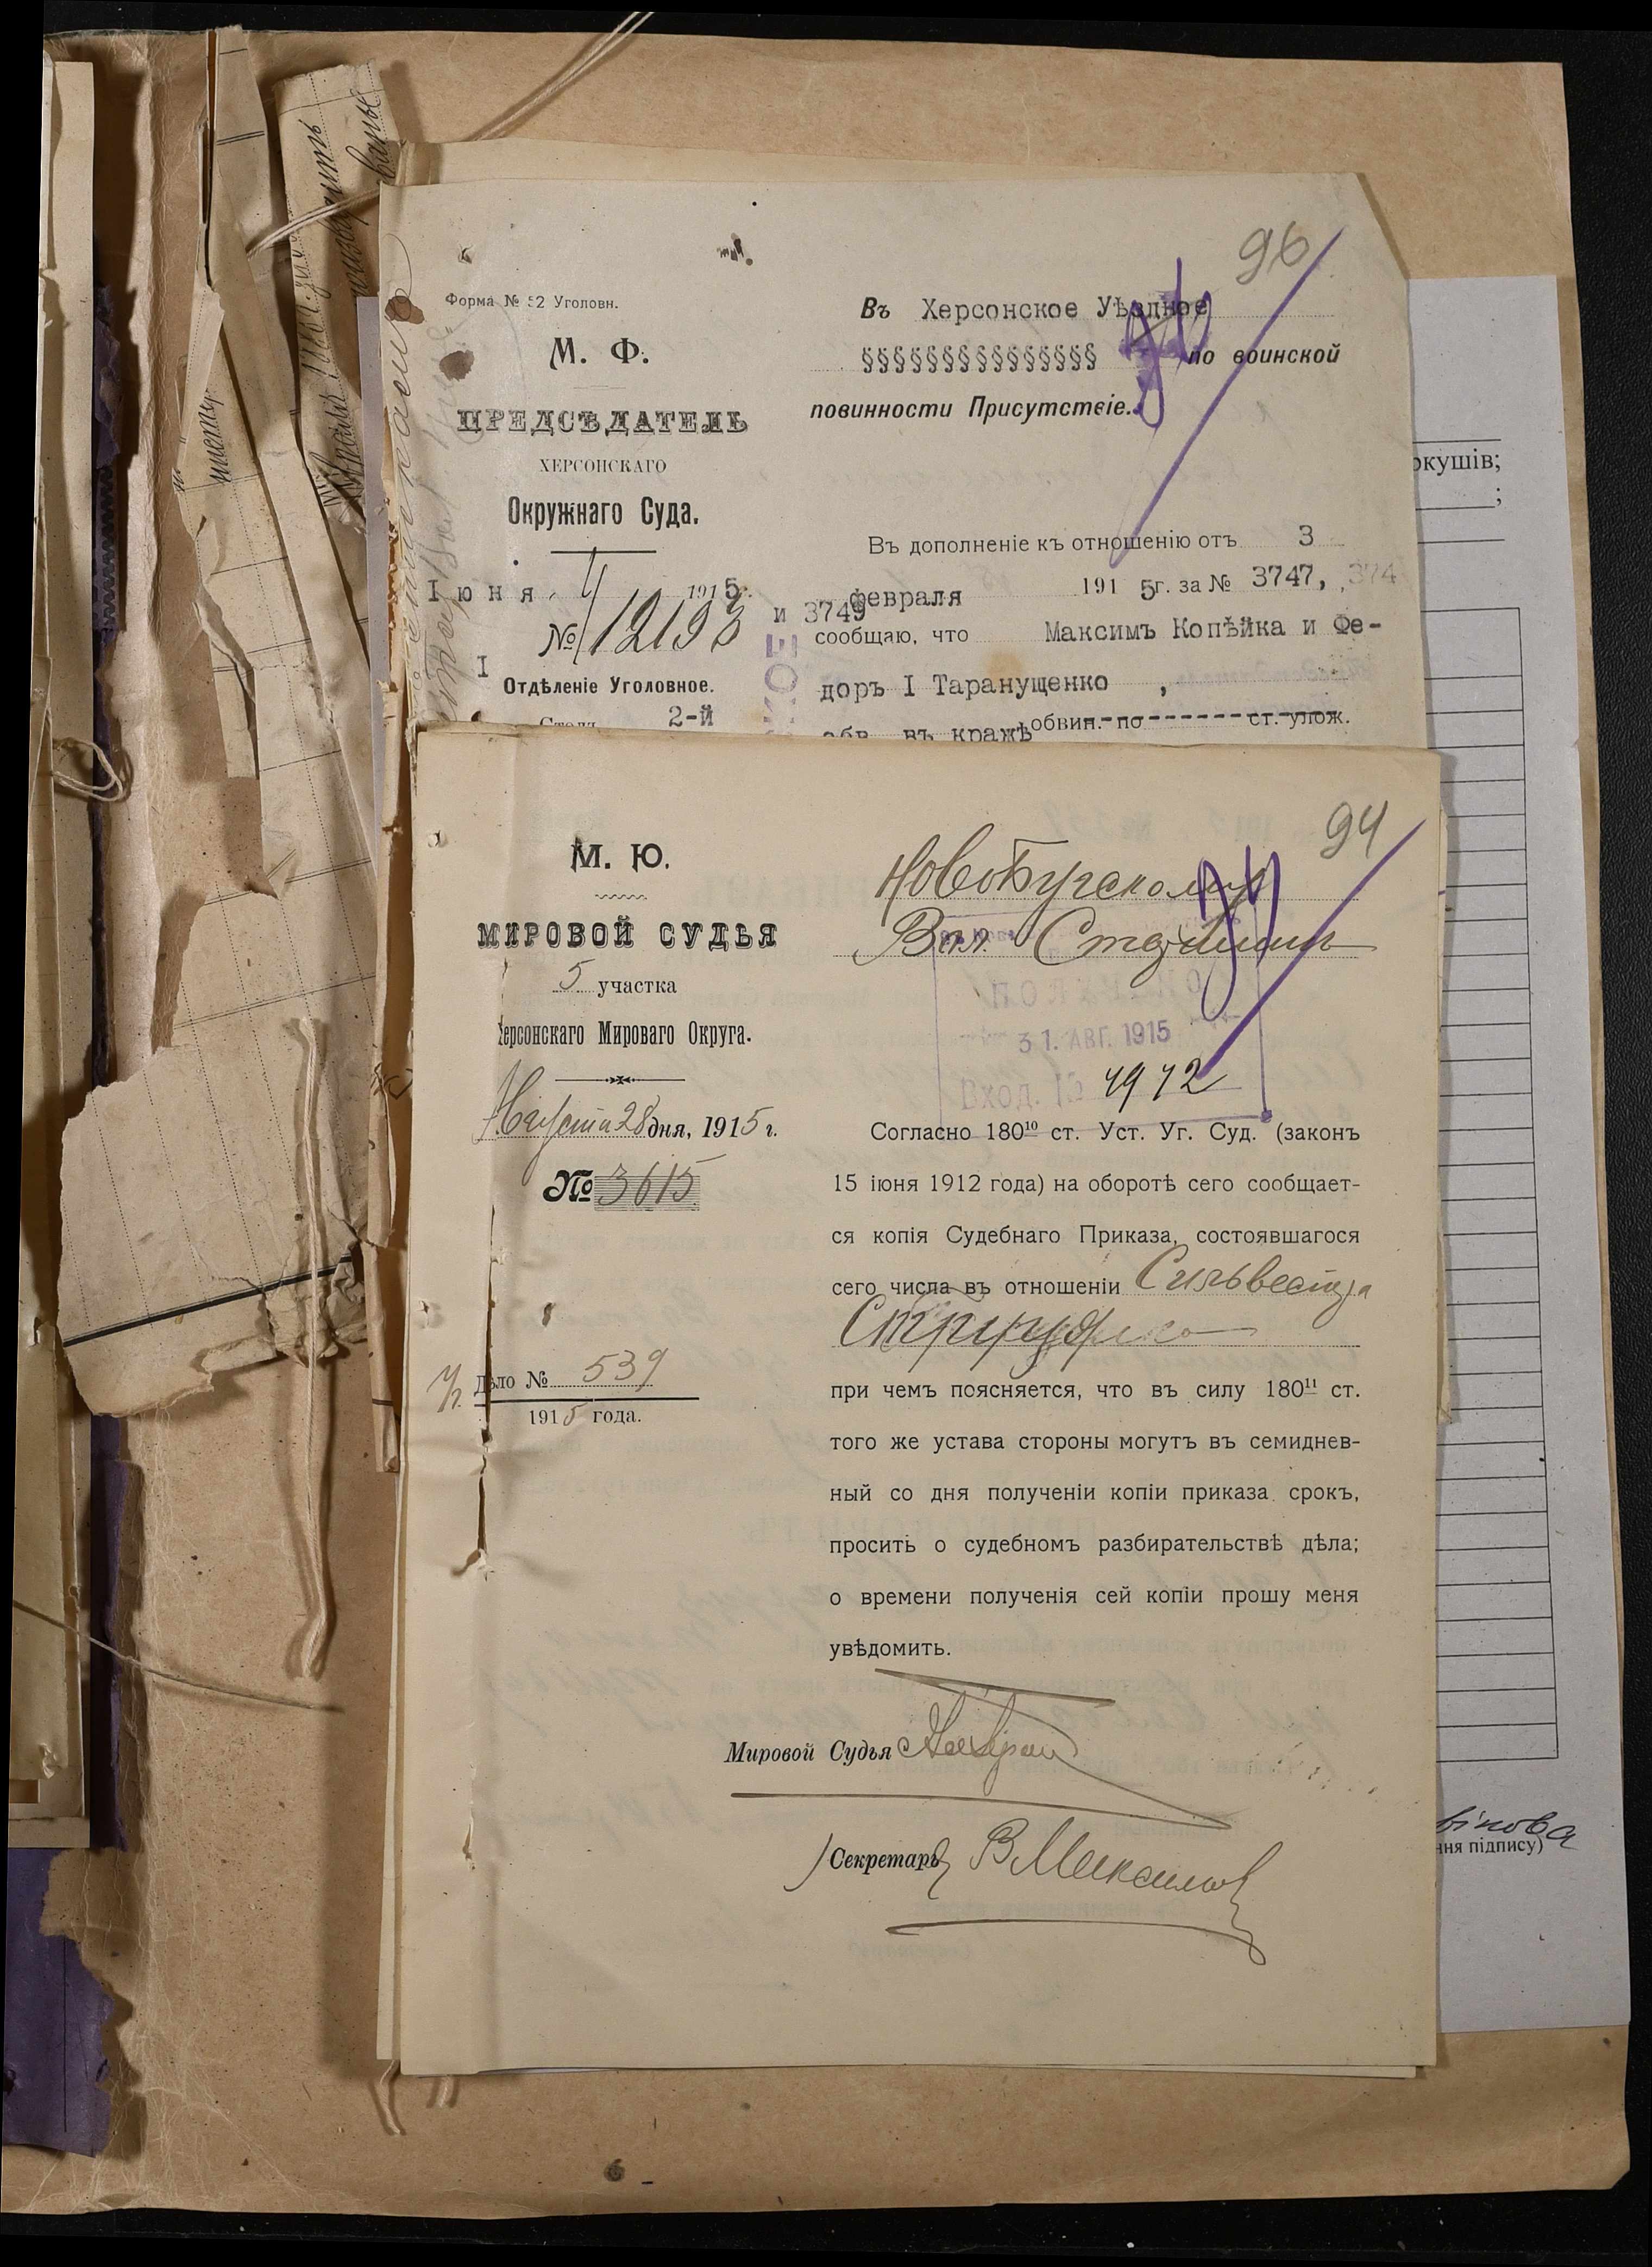 96
Форма № 52 Уголовн.
М. Ф.
ПРЕДСѢДАТЕЛЬ
ХЕРСОНСКАГО
Окружнаго Суда.
Іюня 4 1915г.
№ 12193
I
Отдѣленіе Уголовное.
Столъ 2-й
Въ Херсонское Уѣздное
§§§§§§§§§§§§§§§ по воинской
повинности Присутствіе.
Въ дополненіе къ отношенію отъ 3
февраля 1915г. за № 3747, 374
и 3749
сообщаю, что Максимъ Копѣйка и Фе-
доръ I Таранущенко ,
обвин. по ------- ст. улож.
обв. въ кражѣ
94
М. Ю.
МИРОВОЙ СУДЬЯ
5 участка
Херсонскаго Мироваго Округа.
Августа 28 дня, 1915 г.
№ 3615
Дѣло № 539
1915 года.
НовоБугскому
Вол. Старшинѣ
31. АВГ. 1915
Вход. № 4972
Согласно 180¹⁰ ст. Уст. Уг. Суд. (законъ
15 іюня 1912 года) на оборотѣ сего сообщает-
ся копія Судебнаго Приказа, состоявшагося
сего числа въ отношеніи Сильвестра
при чемъ поясняется, что въ силу 180¹¹ ст.
того же устава стороны могутъ въ семиднев-
ный со дня полученіи копіи приказа срокъ,
просить о судебномъ разбирательствѣ дѣла;
о времени полученія сей копіи прошу меня
увѣдомить.
Мировой Судья
Секретарь В Максимов
окушів;
;
вікова
ння підпису)